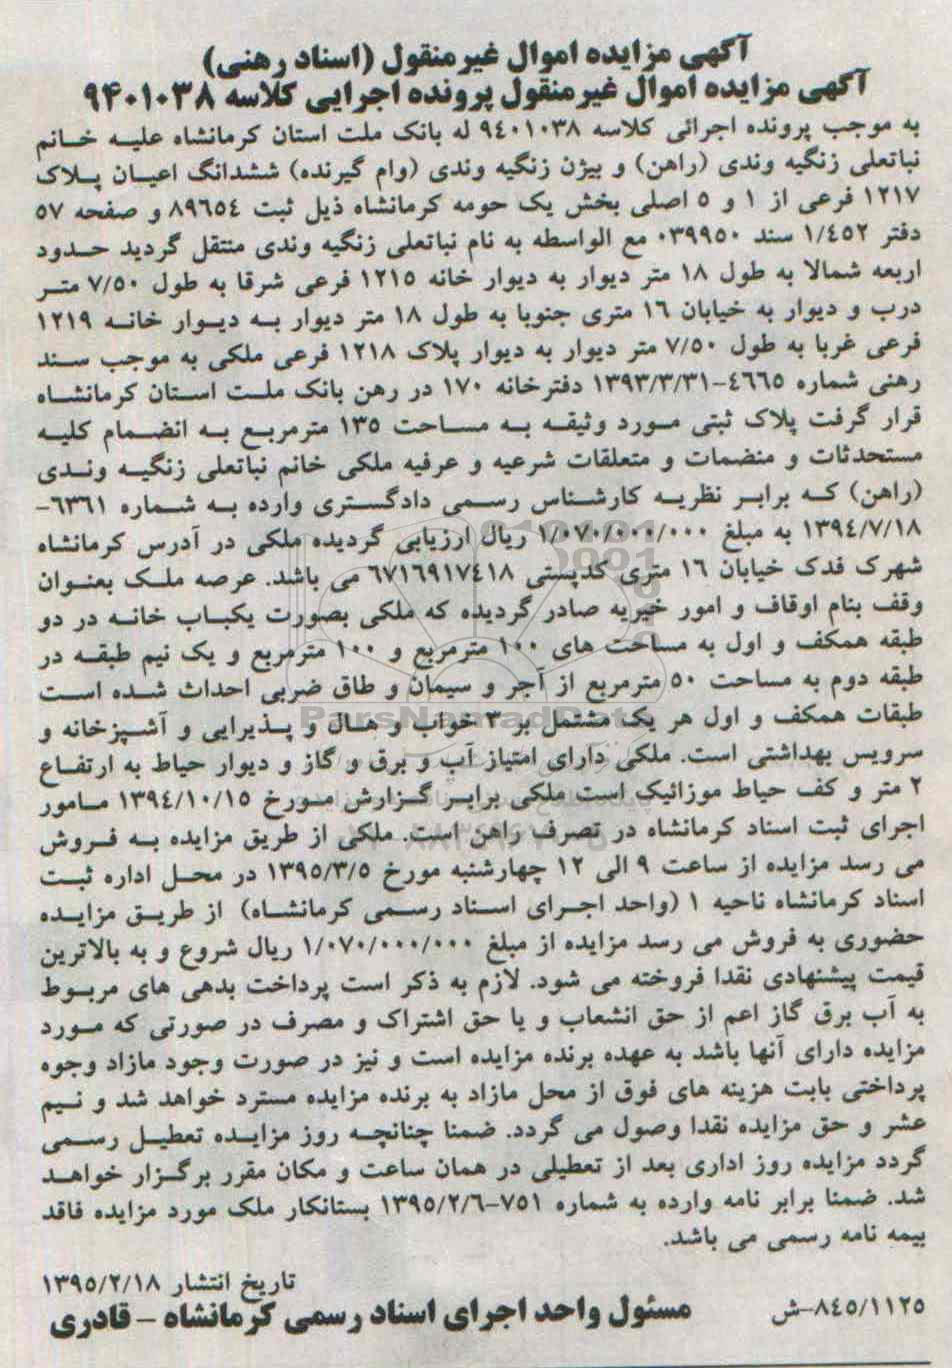 آگهی مزایده اموال غیرمنقول (اسناد رهنی)
آگهی مزایده اموال غیرمنقول پرونده اجرایی کلاسه ۹۴۰۱۰۳۸
به موجب پرونده اجرائی کلاسه ۹٤۰۱۰۳۸ له بانک ملت استان کرمانشاه علیه خانم
نباتعلی زنگیه وندی (راهن) و بیژن زنگیه وندی (وام گیرنده) ششدانگ اعیان پلاک
۱۲۱۷ فرعی از ۱ و ۵ اصلی بخش یک حومه کرمانشاه ذیل ثبت ۸۹٦۵٤ و صفحه ۵۷
دفتر ۱/٤۵۲ سند ۰۳۹۹۵۰ مع الواسطه به نام نباتعلی زنگیه وندی منتقل گردید حدود
اربعه شمالا به طول ۱۸ متر دیوار به دیوار خانه ۱۲۱۵ فرعی شرقا به طول ۷/۵۰ متر
درب و دیوار به خیابان ۱٦ متری جنوبا به طول ۱۸ متر دیوار به دیوار خانه ۱۲۱۹
فرعی غربا به طول ۷/۵۰ متر دیوار به دیوار پلاک ۱۲۱۸ فرعی ملکی به موجب سند
رهنی شماره ٤٦٦۵-۱۳۹۳/۳/۳۱ دفترخانه ۱۷۰ در رهن بانک ملت استان کرمانشاه
قرار گرفت پلاک ثبتی مورد وثیقه به مساحت ۱۳۵ مترمربع به انضمام کلیه
مستحدثات و منضمات و متعلقات شرعیه و عرفیه ملکی خانم نباتعلی زنگیه وندی
(راهن) که برابر نظریه کارشناس رسمی دادگستری وارده به شماره ٦۳٦۱-
۱۳۹٤/۷/۱۸ به مبلغ ۱/۰۷۰/۰۰۰/۰۰۰ ریال ارزیابی گردیده ملکی در آدرس کرمانشاه
شهرک فدک خیابان ۱٦ متری کدپستی ٦۷۱٦۹۱۷٤۱۸ می باشد. عرصه ملک بعنوان
وقف بنام اوقاف و امور خیریه صادر گردیده که ملکی بصورت یکباب خانه در دو
طبقه همکف و اول به مساحت های ۱۰۰ مترمربع و ۱۰۰ مترمربع و یک نیم طبقه در
طبقه دوم به مساحت ۵۰ مترمربع از آجر و سیمان و طاق ضربی احداث شده است
طبقات همکف و اول هر یک مشتمل بر ۳ خواب و هال و پذیرایی و آشپزخانه و
سرویس بهداشتی است. ملکی دارای امتیاز آب و برق و گاز و دیوار حیاط به ارتفاع
۲ متر و کف حیاط موزائیک است ملکی برابر گزارش مورخ ۱۳۹٤/۱۰/۱۵ مامور
اجرای ثبت اسناد کرمانشاه در تصرف راهن است. ملکی از طریق مزایده به فروش
می رسد مزایده از ساعت ۹ الی ۱۲ چهارشنبه مورخ ۱۳۹۵/۳/۵ در محل اداره ثبت
اسناد کرمانشاه ناحیه ۱ (واحد اجرای اسناد رسمی کرمانشاه) از طریق مزایده
حضوری به فروش می رسد مزایده از مبلغ ۱/۰۷۰/۰۰۰/۰۰۰ ریال شروع و به بالاترین
قیمت پیشنهادی نقدا فروخته می شود. لازم به ذکر است پرداخت بدهی های مربوط
به آب برق گاز اعم از حق انشعاب و یا حق اشتراک و مصرف در صورتی که مورد
مزایده دارای آنها باشد به عهده برنده مزایده است و نیز در صورت وجود مازاد وجوه
پرداختی بابت هزینه های فوق از محل مازاد به برنده مزایده مسترد خواهد شد و نیم
عشر و حق مزایده نقدا وصول می گردد. ضمنا چنانچه روز مزایده تعطیل رسمی
گردد مزایده روز اداری بعد از تعطیلی در همان ساعت و مکان مقرر برگزار خواهد
شد. ضمنا برابر نامه وارده به شماره ۷۵۱-۱۳۹۵/۲/٦ بستانکار ملک مورد مزایده فاقد
بیمه نامه رسمی می باشد.
تاریخ انتشار ۱۳۹۵/۲/۱۸
۸٤۵/۱۱۲۵-ش مسئول واحد اجرای اسناد رسمی کرمانشاه - قادری
ParsNamadData